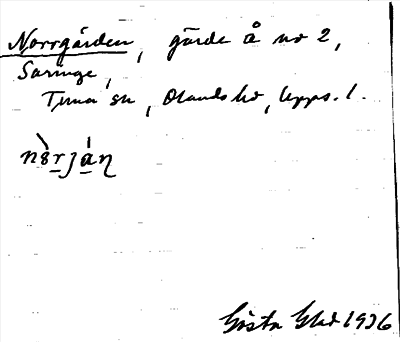 Norrgården, gärde å nr 2,
Saringe,
Tuna sn, Olands hd, Upps. l.
Gösta Glad 1936